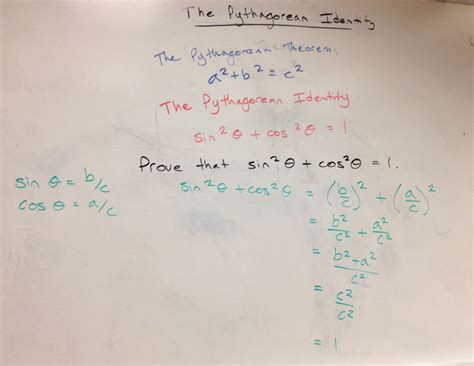 The Pythagorean Identity
The Pythagorean Theorem:
a² + b² = c²
The Pythagorean Identity
sin²θ + cos²θ = 1
Prove that sin²θ + cos²θ = 1.
sin θ = b/c
cos θ = a/c
sin²θ + cos²θ = (b/c)² + (a/c)²
= b²/c² + a²/c²
= b²+a²/c²
= c²/c²
= 1